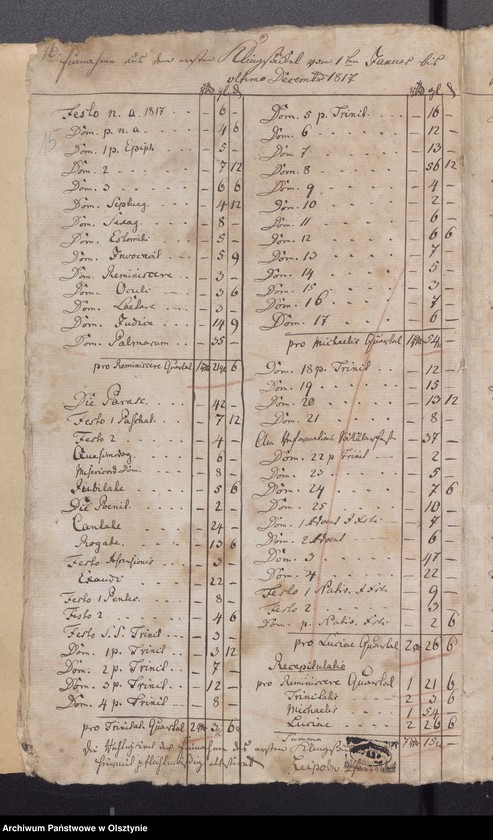 Einnahme aus dem ersten Klingseckel vom 1ten Januar bis
ultimo December 1817
Festo n. a. 1817 - 6 -
Dom. p. n. a. - 4 6
Dom. 1 p. Epiph. - 5 -
Dom. 2 - 7 12
Dom. 3 - 6 6
Dom. Septuag. - 4 12
Dom. Sexag. - 8 -
Dom. Estomihi - 5 -
Dom. Invocavit - 5 9
Dom. Reminiscere - 3 -
Dom. Oculi - 3 6
Dom. Laetare - 3 -
Dom. Judica - 14 9
Dom. Palmarum - 35 -
pro Reminiscere Quartal 1 21 6
Die Parasc. - 42 -
Festo 1 Paschal. - 7 12
Festo 2 - 4 -
Quasimodog. - 6 -
Misericord. Dom. - 8 -
Jubilate - 5 6
Die Poenit. - 2 -
Cantate - 24 -
Rogate - 13 6
Festo Ascensionis - 3 -
Exaudi - 22 -
Festo 1 Pentec. - 8 -
Festo 2 - 4 6
Festo S.S. Trinit - 3 -
Dom. 1 p. Trinit - 3 12
Dom. 2 p. Trinit - 7 -
Dom. 3 p. Trinit - 12 -
Dom. 4 p. Trinit - 8 -
pro Trinitatis Quartal 2 3 6
Dom. 5 p. Trinit. - 16 -
Dom. 6 - 12 -
Dom. 7 - 13 -
Dom. 8 - 56 12
Dom. 9 - 4 -
Dom. 10 - 2 -
Dom. 11 - 6 -
Dom. 12 - 6 6
Dom. 13 - 7 -
Dom. 14 - 5 -
Dom. 15 - 3 -
Dom. 16 - 7 -
Dom. 17 - 6 -
pro Michaelis Quartal 1 54 -
Dom. 18 p. Trinit - 12 -
Dom. 19 - 15 -
Dom. 20 - 13 12
Dom. 21 - 8 -
- 37 -
Dom. 22 p Trinit - 2 -
Dom. 23 - 5 -
Dom. 24 - 7 6
Dom. 25 - 10 -
Dom. 1 Advent - 7 -
Dom. 2 Advent - 6 -
Dom. 3 - 47 -
Dom. 4 - 22 -
Festo 1 Nativ. - 9 -
Festo 2 - 3 -
Dom. p. Nativ. - 2 6
pro Luciae Quartal 2 26 6
Recapitulatio
pro Reminiscere Quartal 1 21 6
Trinitatis 2 3 6
Michaelis 1 54 -
Luciae 2 26 6
Summa 7 15 -
Archiwum Państwowe w Olsztynie